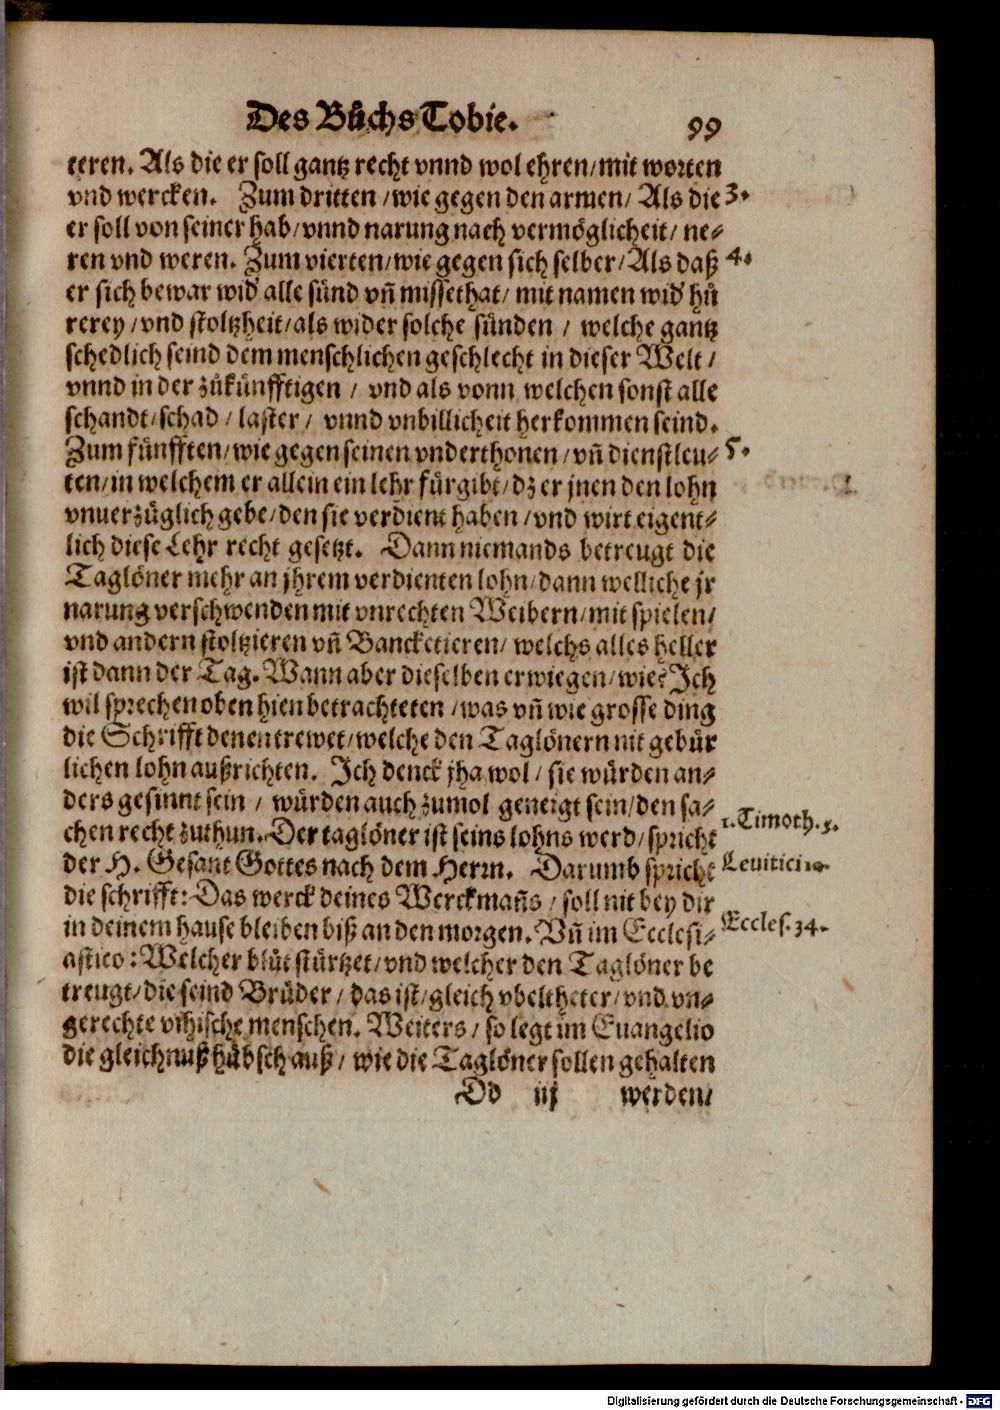 Des Bůchs Tobie.
99
teren. Als die er soll gantz recht vnnd wol ehren/mit worten
vnd wercken. Zum dritten/wie gegen den armen/Als die
3.
er soll von seiner hab/vnnd narung nach vermöglicheit/ ne⸗
ren vnd weren. Zum vierten/wie gegen sich selber/Als daß
4.
er sich bewar wid' alle sünd vñ missethat/ mit namen wid' hů
rerey/vnd stoltzheit/als wider solche sünden / welche gantz
schedlich seind dem menschlichen geschlecht in dieser Welt/
vnnd in der zůkünfftigen / vnd als vonn welchen sonst alle
schandt/schad/laster/ vnnd vnbillicheit herkommen seind.
Zum fünfften/wie gegen seinen vnderthonen/vñ dienstleu⸗
5.
ten/in welchem er allein ein lehr fürgibt/dz er jnen den lohn
vnuerzüglich gebe/den sie verdient haben/vnd wirt eigent⸗
lich diese Lehr recht gesetzt. Dann niemands betreugt die
Taglöner mehr an jhrem verdienten lohn/dann welliche jr
narung verschwenden mit vnrechten Weibern/mit spielen/
vnd andern stoltzieren vñ Bancketieren/ welchs alles heller
ist dann der Tag. Wann aber dieselben erwiegen/wie? Ich
wil sprechen oben hien betrachteten/was vñ wie grosse ding
die Schrifft denen trewet/welche den Taglönern nit gebür
lichen lohn außrichten. Ich denck jha wol/ sie würden an⸗
ders gesinnt sein / würden auch zumol geneigt sein/den sa⸗
chen recht zuthun. Der taglöner ist seins lohns werd/spricht
1. Timoth. 5.
der H. Gesant Gottes nach dem Herrn. Darumb spricht
Leuitici 19.
die schrifft: Das werck deines Werckmañs/ soll nit bey dir
in deinem hause bleiben biß an den morgen. Vñ im Ecclesi⸗
Eccles. 34.
astico: Welcher blůt stürtzet/vnd welcher den Taglöner be
treugt/die seind Brüder/ das ist/gleich vbeltheter/vnd vn⸗
gerechte vihische menschen. Weiters/ so legt im Euangelio
die gleichnuß hübsch auß/ wie die Taglöner sollen gehalten
Dd iij werden/
Digitalisierung gefördert durch die Deutsche Forschungsgemeinschaft - DFG